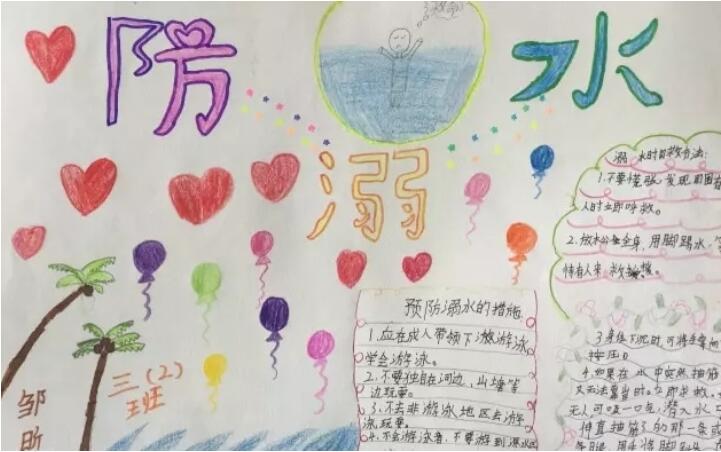 防
溺
水
救命
预防溺水的措施
1.应在成人带领下游泳
学会游泳。
2.不要独自在河边、山塘等
边玩耍。
3.不去非游泳地区去游
泳玩耍。
4.不会游泳者,不要游到深水区
溺水时自救方法:
1.不要慌张,发现周围有
人时立即呼救。
2.放松全身,用脚踢水,
待有人来救援。
3.身体下沉时,可将手掌向
按压。
4.如果在水中突然抽筋
又无法靠岸时,立即求救。
无人可吸一口气,潜入水
伸直抽筋的那一条或
三(2)
班
邹昕